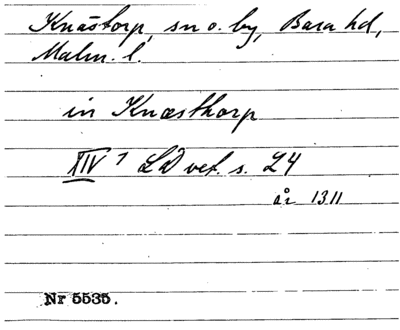 Knästorp, sn o. by, Bara hd,
Malm. l.
in Knæsthorp
XIV 1 LD vet. s. 24
år 1311
Nr 5535.